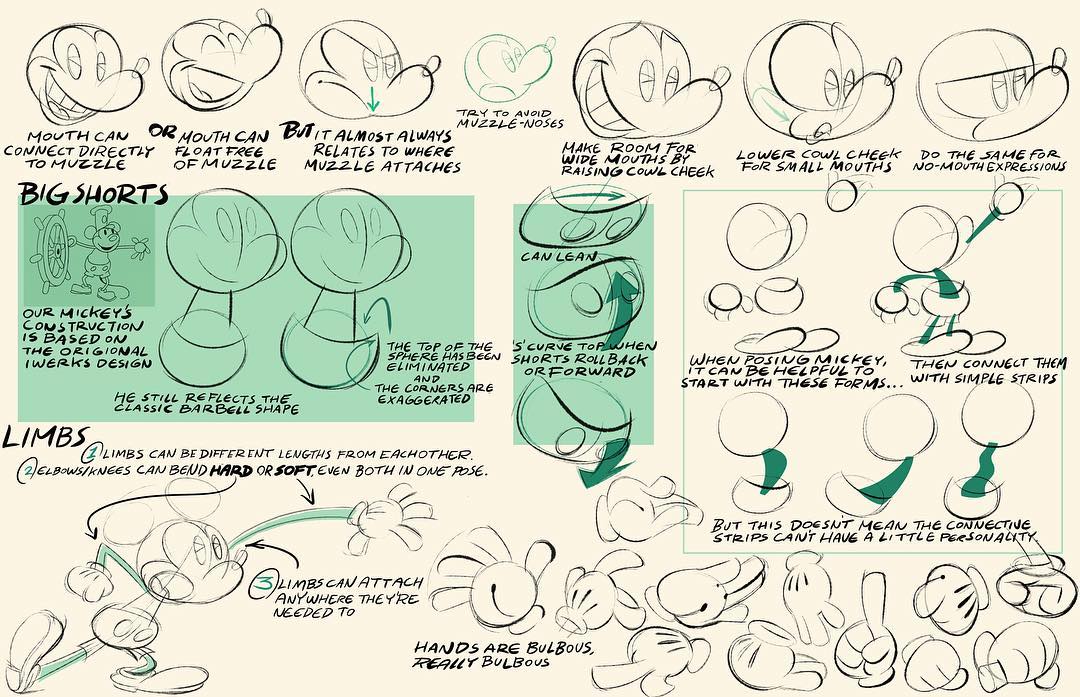 MOUTH CAN
CONNECT DIRECTLY
TO MUZZLE
OR MOUTH CAN
FLOAT FREE
OF MUZZLE
BUT IT ALMOST ALWAYS
RELATES TO WHERE
MUZZLE ATTACHES
TRY TO AVOID
MUZZLE-NOSES
MAKE ROOM FOR
WIDE MOUTHS BY
RAISING COWL CHEEK
LOWER COWL CHEEK
FOR SMALL MOUTHS
DO THE SAME FOR
NO-MOUTH EXPRESSIONS
BIG SHORTS
OUR MICKEY'S
CONSTRUCTION
IS BASED ON
THE ORIGIONAL
IWERKS DESIGN
HE STILL REFLECTS THE
CLASSIC BARBELL SHAPE
THE TOP OF THE
SPHERE HAS BEEN
ELIMINATED
AND
THE CORNERS ARE
EXAGGERATED
CAN LEAN
'S' CURVE TOP WHEN
SHORTS ROLL BACK
OR FORWARD
WHEN POSING MICKEY,
IT CAN BE HELPFUL TO
START WITH THESE FORMS...
THEN CONNECT THEM
WITH SIMPLE STRIPS
BUT THIS DOESN'T MEAN THE CONNECTIVE
STRIPS CAN'T HAVE A LITTLE PERSONALITY.
LIMBS
1 LIMBS CAN BE DIFFERENT LENGTHS FROM EACHOTHER.
2 ELBOWS/KNEES CAN BEND HARD OR SOFT, EVEN BOTH IN ONE POSE.
3 LIMBS CAN ATTACH
ANYWHERE THEY'RE
NEEDED TO
HANDS ARE BULBOUS,
REALLY BULBOUS